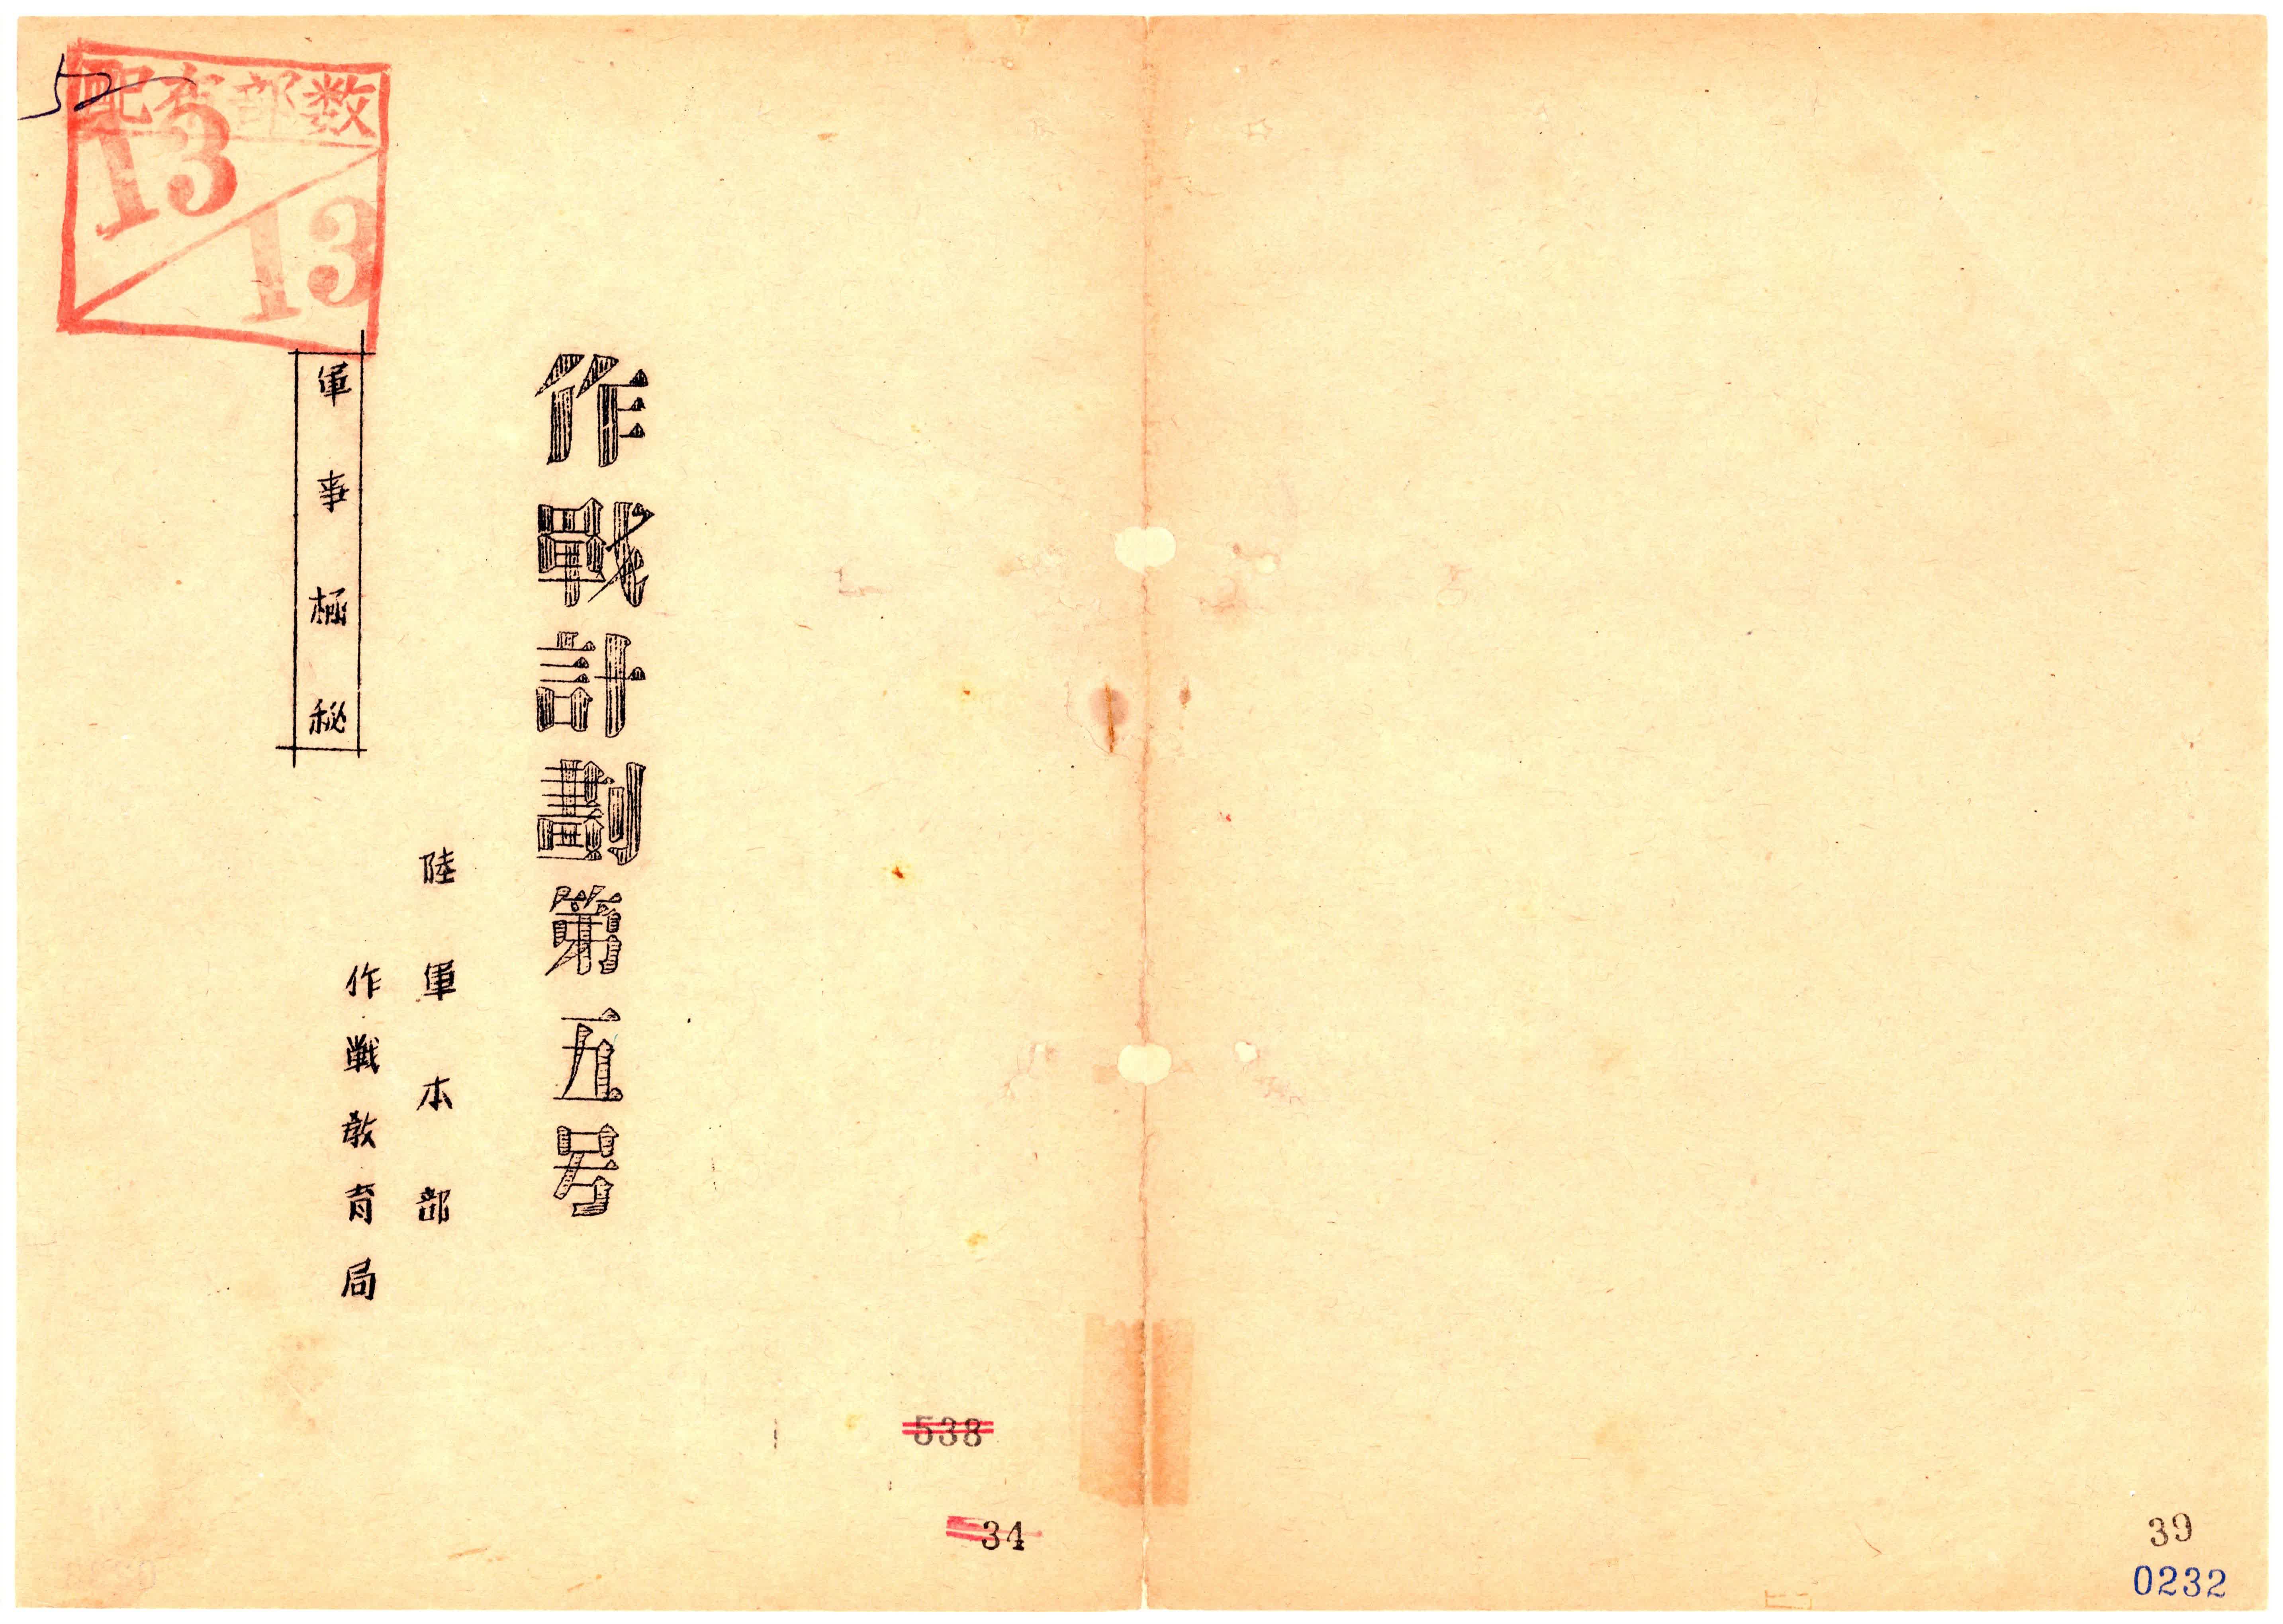 配布部数
13
13
作戰計劃第五号
陸軍本部
作戦教育局
軍事極秘
538
34
39
0232